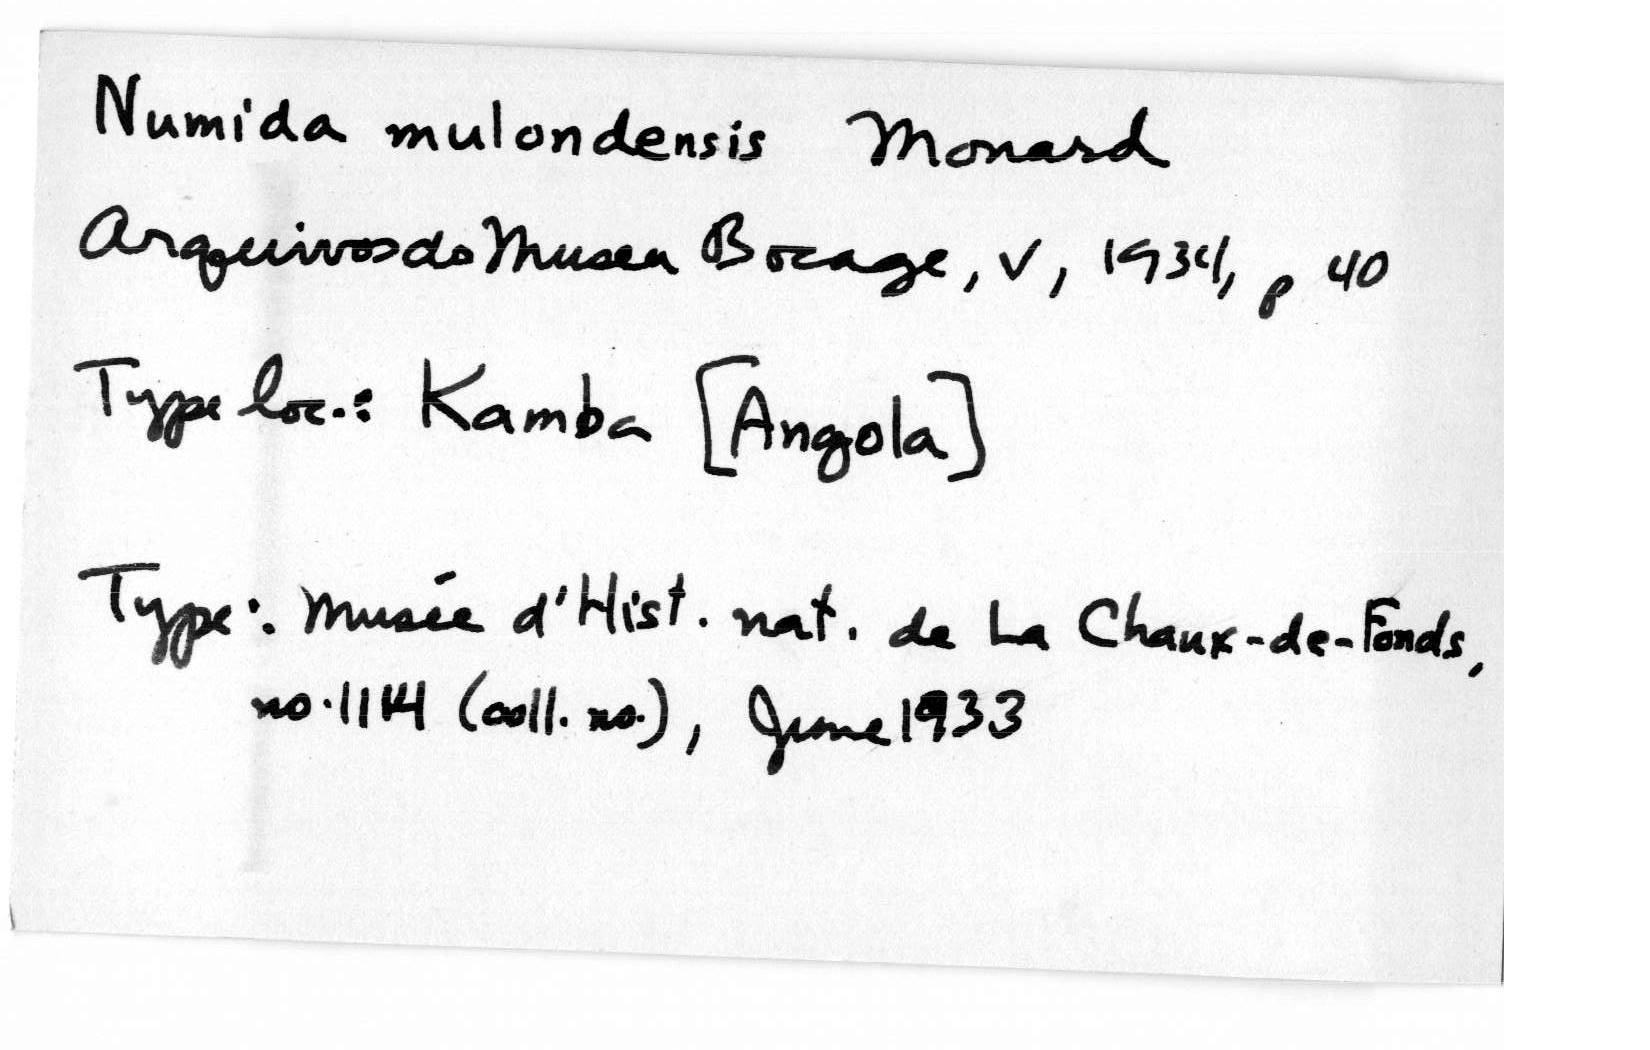 Numida mulondensis Monard
Arquivos do Museu Bocage, V, 1934, p 40
Type loc.: Kamba [Angola]
Type: Musée d'Hist. nat. de La Chaux-de-Fonds,
no. 1144 (coll. no.), June 1933